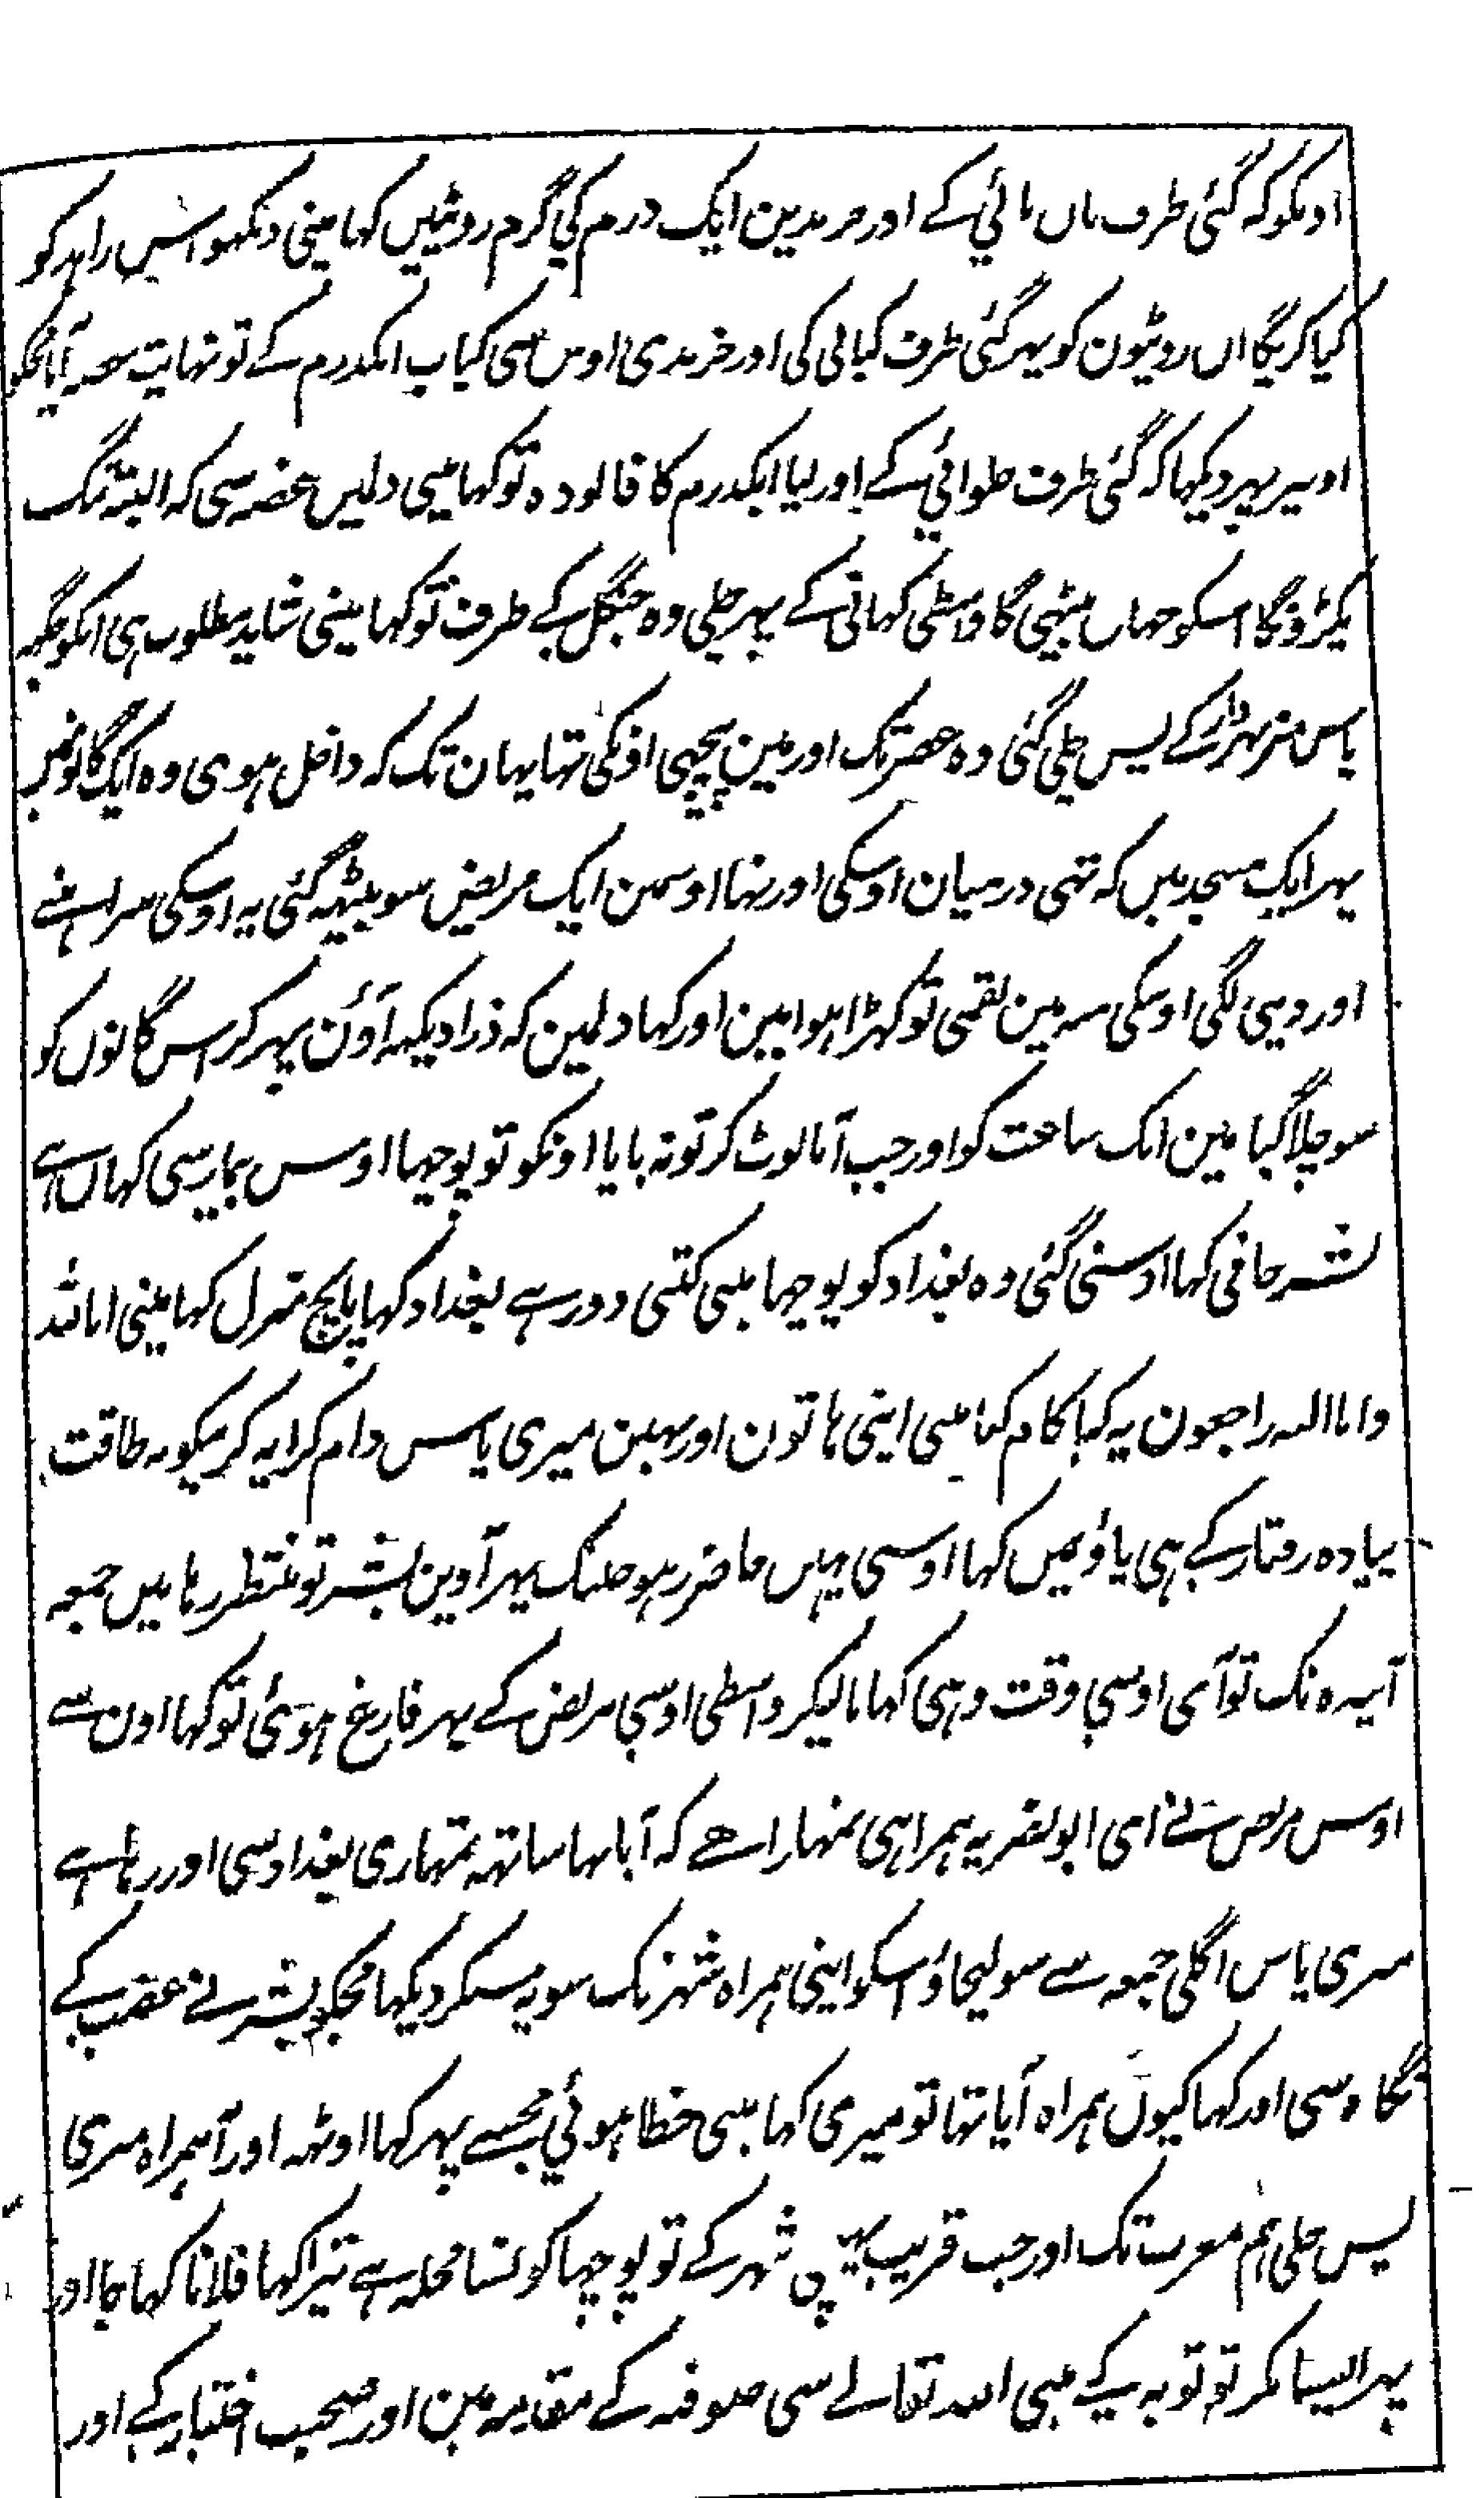 اونکو کہ گئی طرف نان بائی کے اور خریدین ایک درم کی گرم روٹیں کہا مینی دیکھو اس زاہد کو
کیا کریگا ان روٹیون کو پہر گئی طرف کبابی کی اور خریدی اوس سی کباب ایکدرم کے تو نہایت غصہ آیا مجکو
اوسپر پہر دیکہا کہ گئی طرف حلوائی کے اور لیا ایکدرم کا فالودہ تو کہا مینی دلمیں غصہ سی کہ البتہ تنگ
پکڑونگا اسکو جہاں بیٹہی گا واسطی کہانی کے پہر چلی وہ جنگل کے طرف تو کہا مینی شاید مطلوب ہی انکو جگہ
پاس نہر کے پس چلی گئی وہ عصر تک اور مین پیچہی اونکی تہا یہان تک کہ داخل ہوی وہ ایک گانو میں
پہر ایک مسجد میں کہ تہی درمیان اوسکی اور تہا اوسمین ایک مریض سو بیٹہہ گئی یہ اوسکی سراہنے
اور دینی لگی اوسکی منہ مین لقمی تو کہڑا ہوا مین اور کہا دلمین کہ ذرا دیکہہ آؤن پہر کر اس گانوں کو
سو چلا گیا مین ایک ساعت کو اور جب آیا لوٹ کر تو نہ پایا اونکو تو پوچہا اوس بیمار سی کہاں ہے
بشر حافی کہا اوسنی گئی وہ بغداد کو پوچہا مینی کتنی دور ہے بغداد کہا پانچ منزل کہا مینی انا للہ
وانا الیہ راجعون یہ کیا کام کیا مینی اپنی ہاتون اور نہین میری پاس دام کرایہ کر نیکو نہ طاقت
پیادہ رفتار کے ہی پاؤنمیں کہا اوسی یہیں حاضر رہو جبتک پہر آوین بشر تو منتظر رہا میں جمعہ
آیندہ تک تو آی اوسی وقت وہی کہانا لیکر واسطی اوسی مریض کے پہر فارغ ہوئی تو کہا اون سے
اوس مریض نے ای ابو نصر یہ ہمراہی تمہارا ہے کہ آیا تہا ساتہہ تمہاری بغداد سی اور رہا ہے
میری پاس اگلی جمعہ سے سو لیجاؤ اسکو اپنی ہمراہ شہر تک سو یہ سنکر دیکہا مجکو بشر نے غضب کے
نگاہ سی اور کہا کیوں ہمراہ آیا تہا تو میری کہا مینی خطا ہوئی مجہسے پہر کہا اوٹہہ اور آ ہمراہ میری
پس چلی ہم مغرب تک اور جب قریب پہنچی شہر کے تو پوچہا کونسا محلہ ہے تیرا کہا فلانا کہا جا اور
پہر ایسا نکر تو توبہ کے مینی اللہ تعالے سی صوفیہ کے مقدمہ مین اور صحبت اختیار کے اور